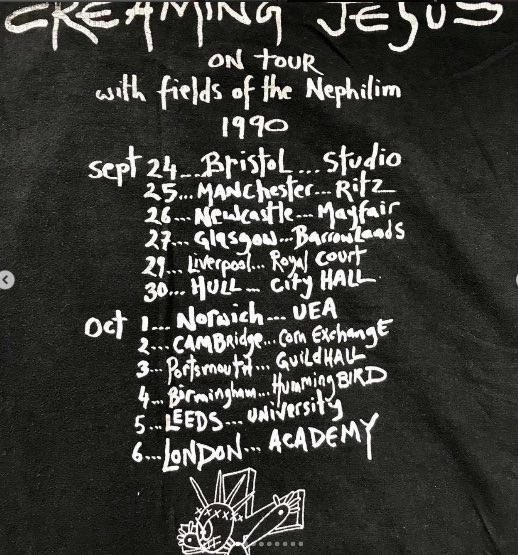 CREAMING JESUS
ON TOUR
with fields of the Nephilim
1990
Sept 24...Bristol...Studio
25...MANChester...Ritz
26...Newcastle...Mayfair
27...Glasgow...Barrowlands
29...Liverpool...Royal Court
30...HULL...City HALL
Oct 1...Norwich...UEA
2...CAMBridge...Corn Exchange
3...Portsmouth...GUildHALL
4...Birmingham...HummingBIRD
5...LEEDS...UNiversity
6...LONDON...ACADEMY